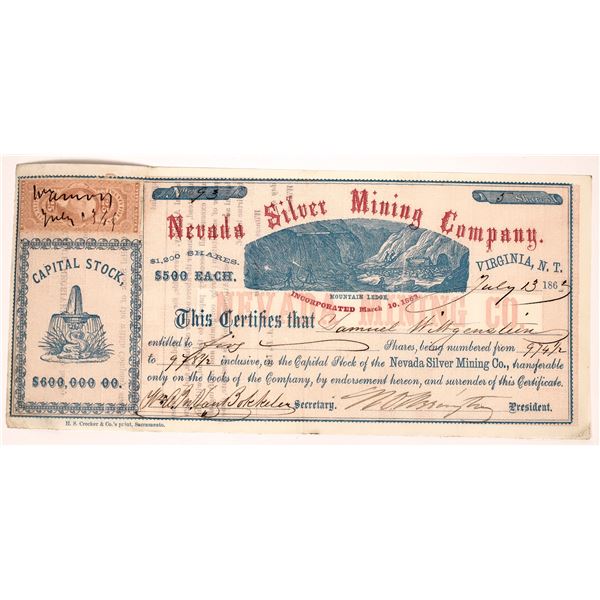 No. 93
5 Shares
Nevada Silver Mining Company.
July
CAPITAL STOCK,
$600,000 00.
$1,200 SHARES.
$500 EACH.
MOUNTAIN LEDGE,
INCORPORATED March 10, 1863.
VIRGINIA, N. T.
July 13 186
NEVADA MINING CO
This Certifies that Samuel Wittgenstein
entitled to five Shares, being numbered from 974½
to inclusive, in the Capital Stock of the Nevada Silver Mining Co., transferable
only on the books of the Company, by endorsement hereon, and surrender of this Certificate.
Secretary. President.
H. S. Crocker & Co.'s print, Sacramento.